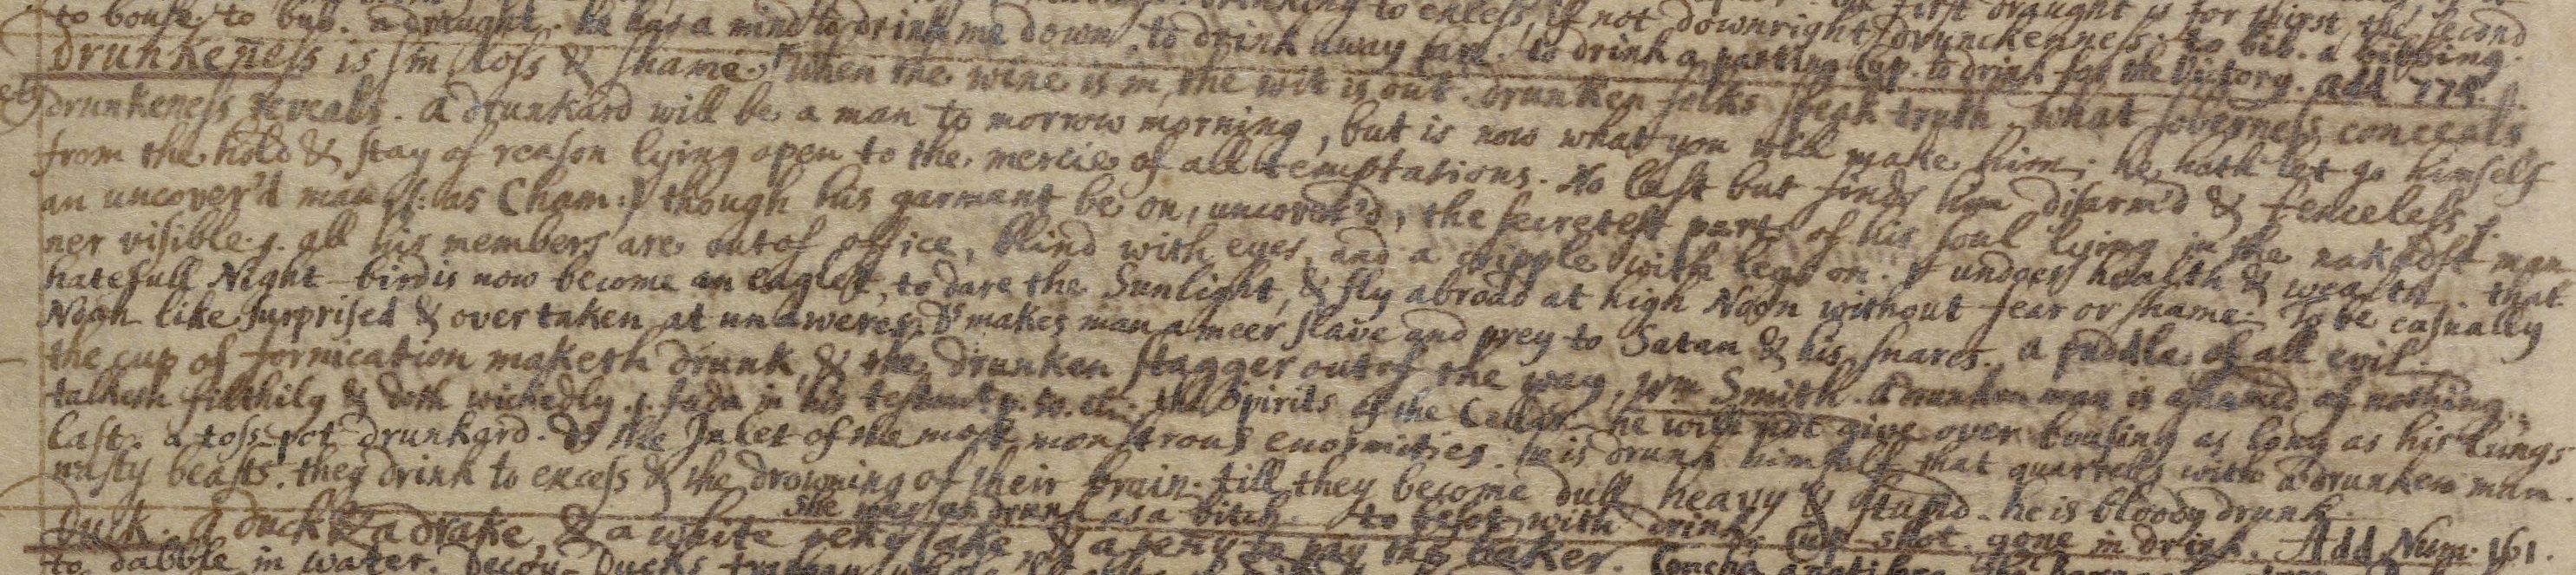 drinking to excess, if not downright drunckenness. first draught is for thirst, the second
to bouse, to bub. a draught. he has a mind to drink me down. to drink away care. to drink a parting cup. to drink for the Victory. add 775.
drunkeness is sin loss & shame. when the wine is in, the wit is out. drunken folks speak truth. what soberness conceals
drunkeness reveals. a drunkard will be a man to morrow morning, but is now what you will make him. he hath let go himself
from the hold & stay of reason lying open to the mercie of all temptations. No lust but finds him disarm'd & fenceless.
an uncover'd man (: as Cham :) though his garmant be on, uncover'd, the secretest parts of his soul lying in the nakedst man
ner visible. all his members are out of office, blind with eyes, and a cripple with legs on. undoes health & wealth. that
hatefull Night-bird is now become an eaglet, to dare the Sunlight, & fly abroad at high Noon without fear or shame. To be casually
Noah like surprised & over taken at unawares. makes man a meer slave and prey to Satan & his snares. a puddle of all evil.
the cup of fornication maketh drunk, & the drunken stagger out of the way, Wm Smith. a drunken man is ashamed of nothing.
talketh filthily & doth wickedly. Juda in his testamt the Spirits of the Cellar. he will not give over bousing as long as his lungs
last. a toss-pot drunkard. the Inlet of the most monstrous enormities. he is drunk himself that quarrells with a drunken man.
nasty beasts. they drink to excess & the drowning of their brain. till they become dull heavy & stupid. he is bloody drunk.
She was as drunk as a bitch. to besot with drink. Cup-shot. gone in drink. Add Num. 161.
Duck. a duck & a drake, & a white peny cake, & a peny to pay the baker.
to dabble in water. Decoy-Ducks